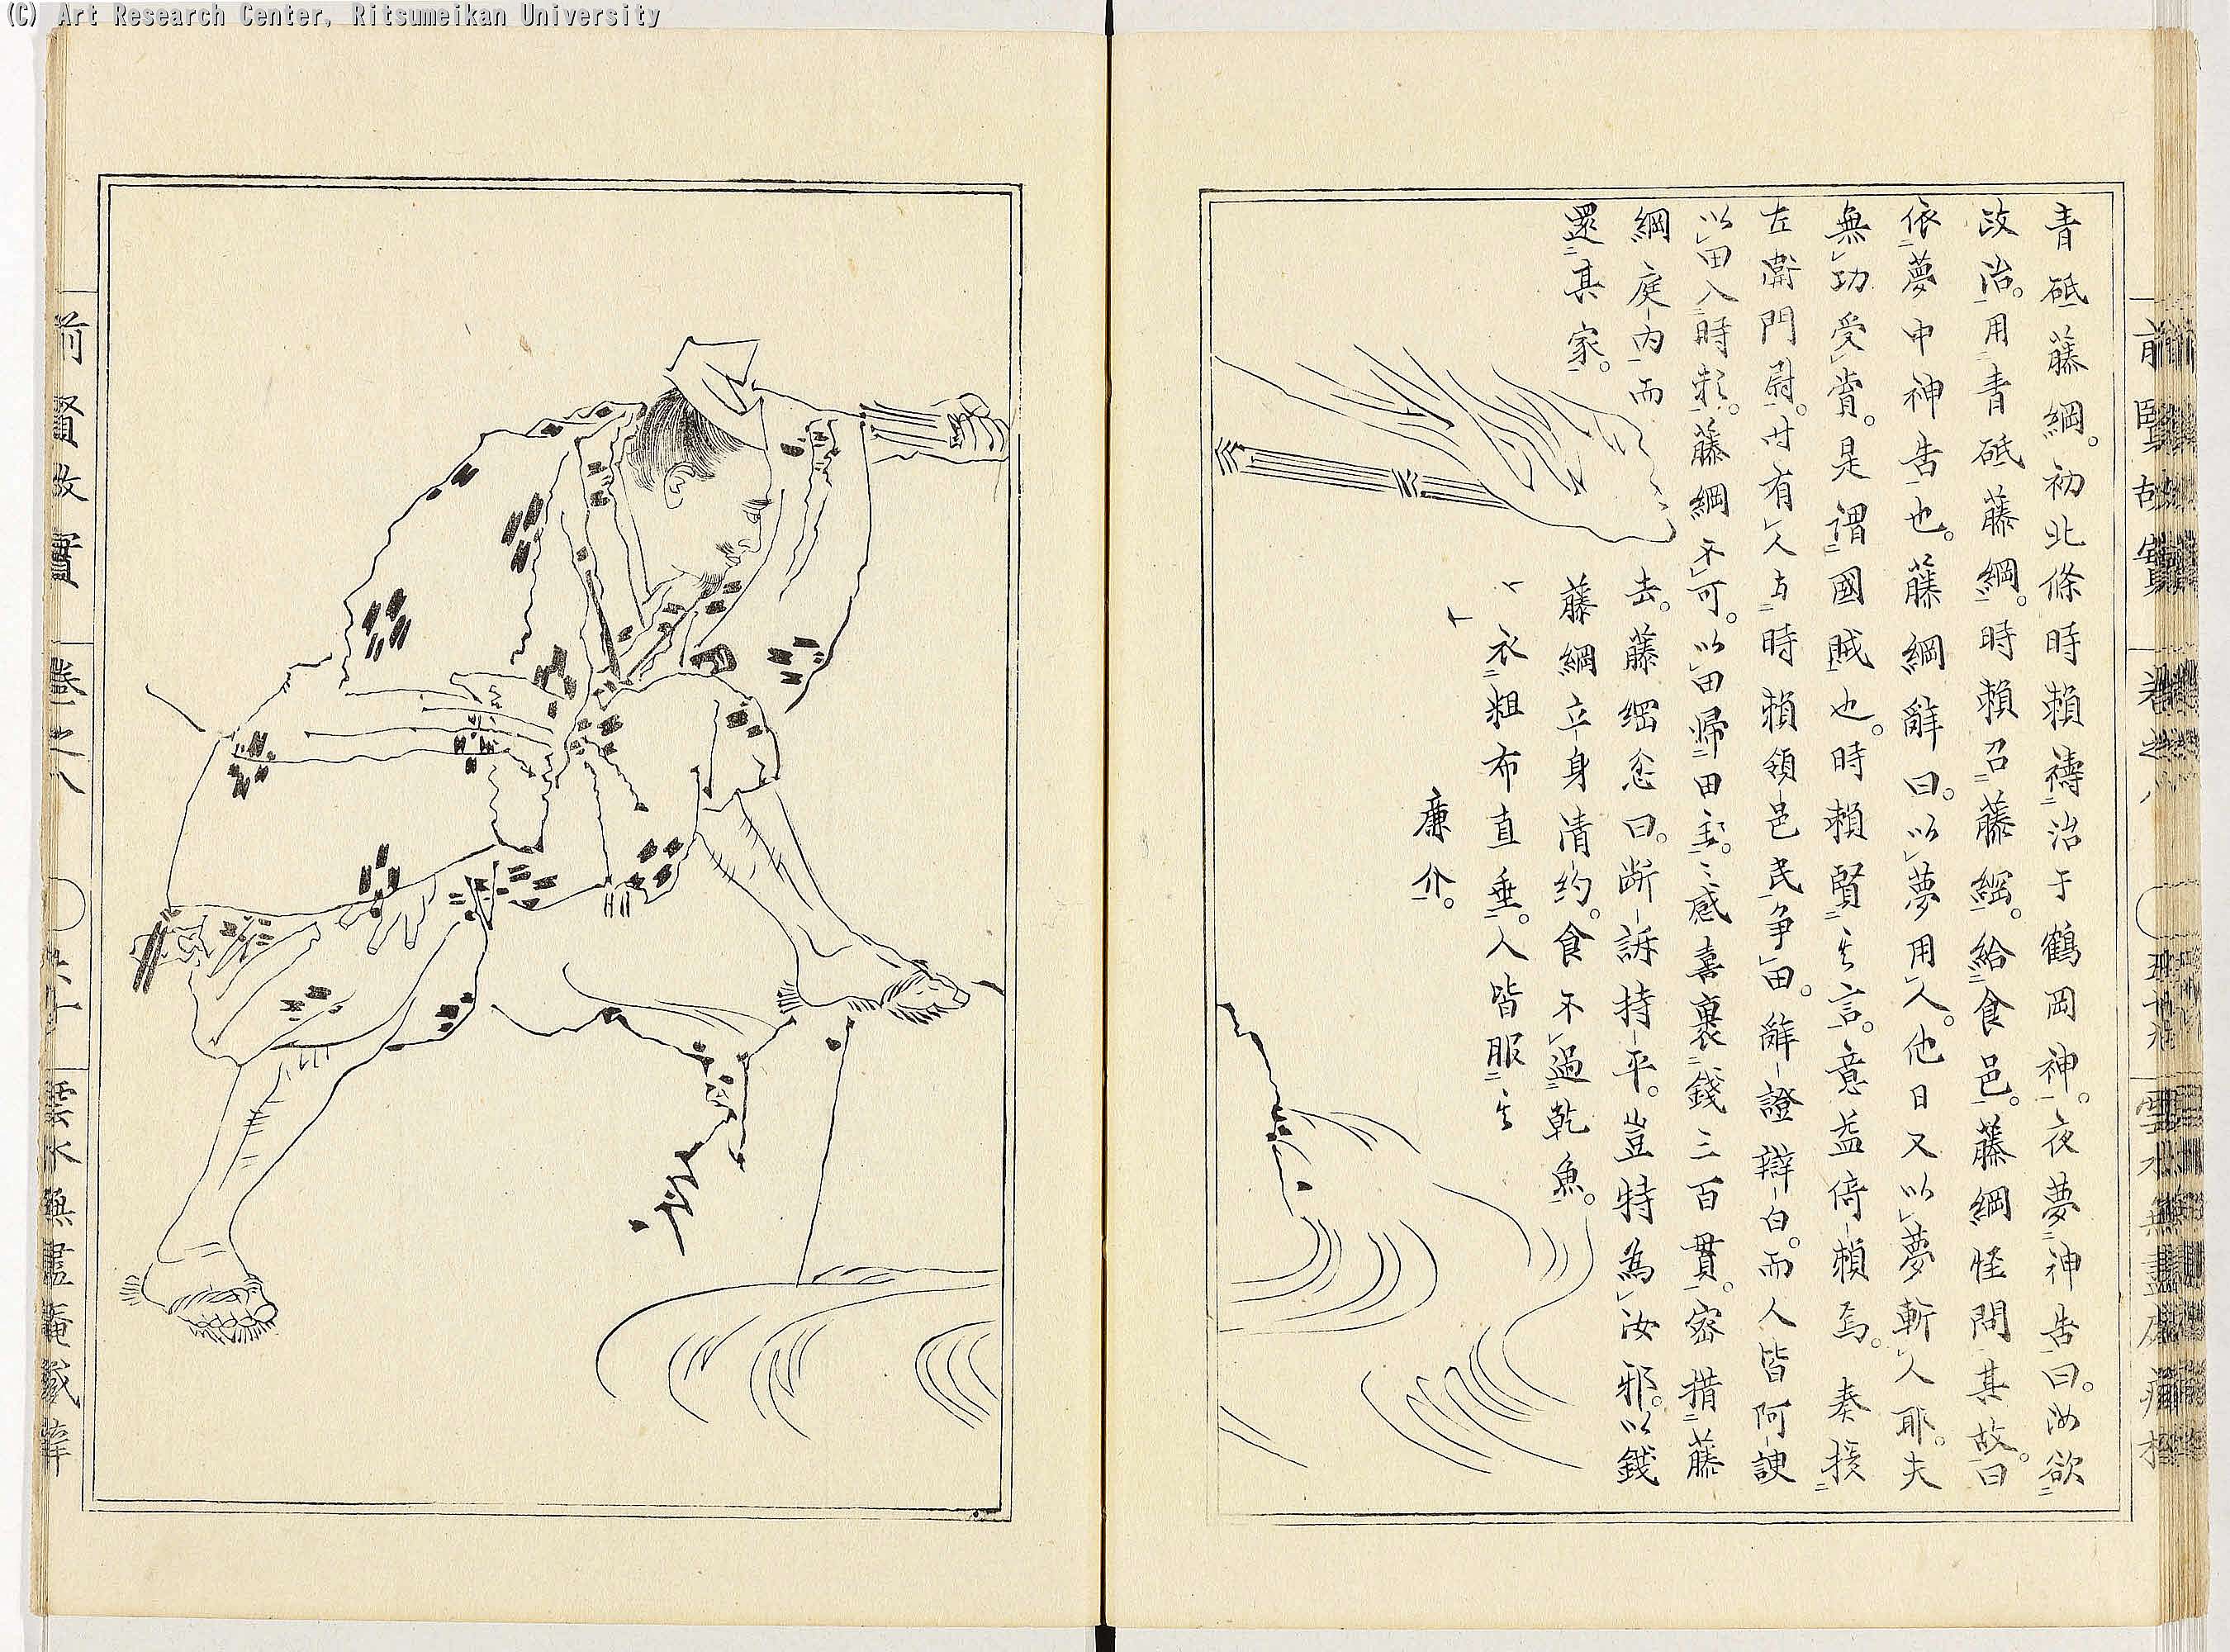 (C) Art Research Center, Ritsumeikan University
青砥藤綱。初北條時賴禱治于鶴岡神。夜夢神告曰。汝欲
改治。用青砥藤綱。時賴召藤綱。給食邑。藤綱怪問其故。曰
依夢中神告也。藤綱辭曰。以夢用人。他日又以夢斬人耶。夫
無功受賞。是謂國賊也。時賴賢之言。意益倚賴焉。奏授
左衛門尉。時有人与時賴領邑民争田。辭證辯白。而人皆阿諛
以田入時賴。藤綱不可。以田歸田主。〻感喜裹錢三百貫。密措藤
綱庭內而
去。藤綱忿曰。斷訴持平。豈特為汝邪。以錢
還其家。
藤綱立身清約。食不過乾魚。
衣粗布直垂。人皆服之
廉介。
前賢故實
卷之八
雲水無盡庵藏梓